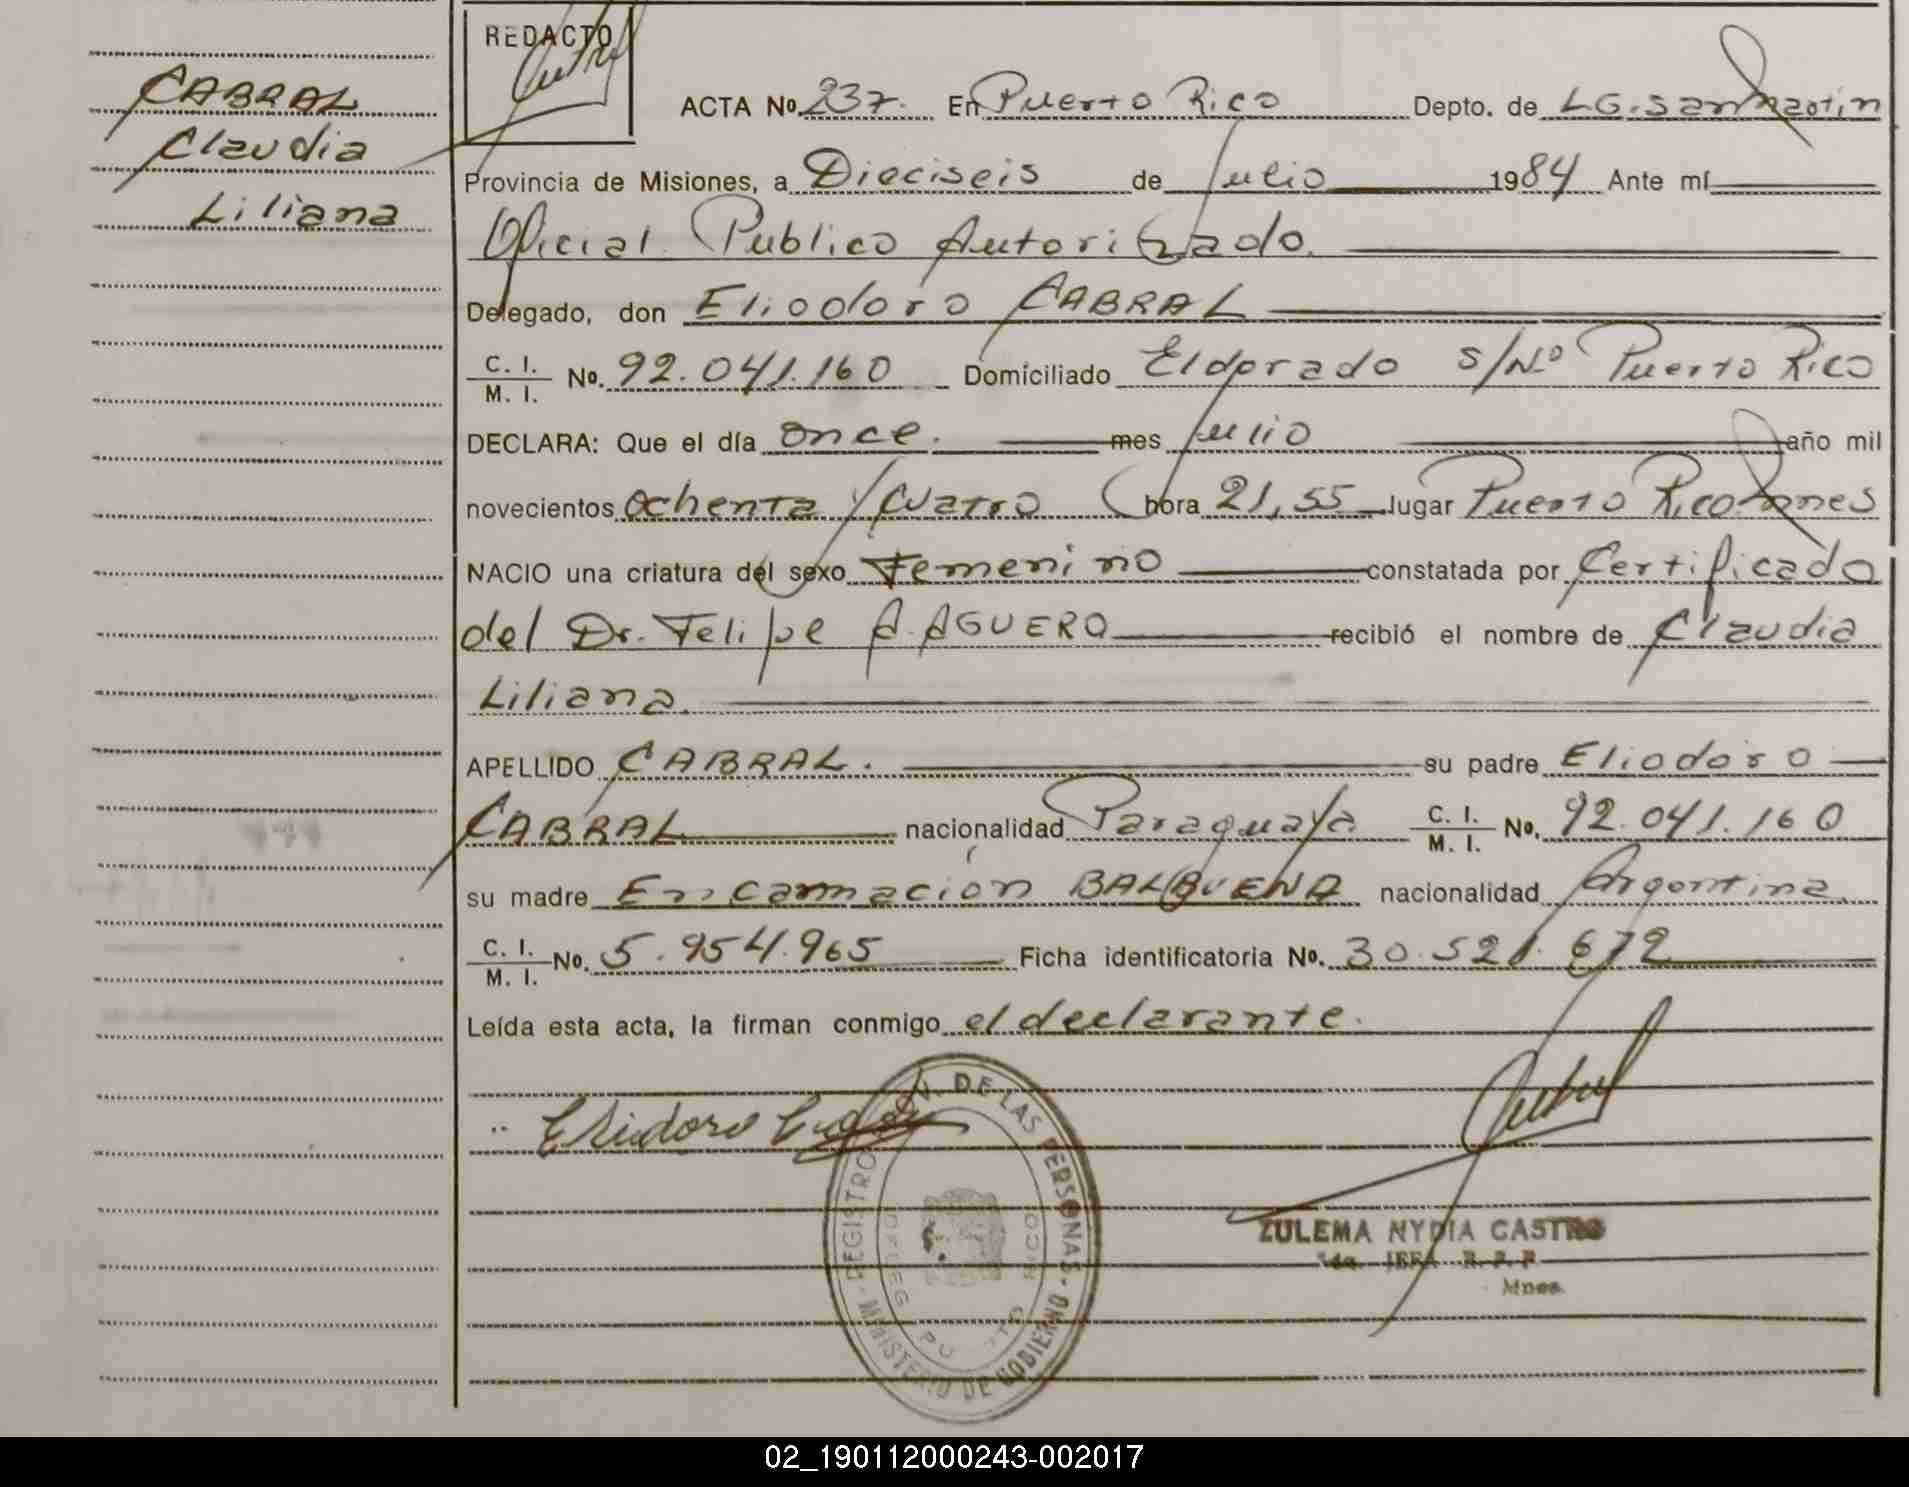 REDACTO
CABRAL
Claudia
Liliana
ACTA No. 237. En Puerto Rico Depto. de L.G. San Martin
Provincia de Misiones, a Dieciseis de Julio 1984 Ante mí
Oficial Publico Autorizado.
Delegado, don Eliodoro CABRAL
C. I.
M. I. No. 92.041.160 Domiciliado Eldorado S/Nº Puerto Rico
DECLARA: Que el día once. mes Julio año mil
novecientos ochenta y Cuatro hora 21,55 lugar Puerto Rico Mnes
NACIO una criatura del sexo Femenino constatada por Certificado
del Dr. Felipe A. AGUERO recibió el nombre de Claudia
Liliana.
APELLIDO CABRAL. su padre Eliodoro
CABRAL nacionalidad Paraguaya C. I.
M. I. No. 92.041.160
su madre Encarnación BALBUENA nacionalidad Argentina.
C. I.
M. I. No. 5.954.965 Ficha identificatoria No. 30.521.672
Leída esta acta, la firman conmigo el declarante.
REGISTRO DE LAS PERSONAS - MINISTERIO DE GOBIERNO
RICO
ZULEMA NYDIA CASTRO
Mnes.
02_190112000243-002017